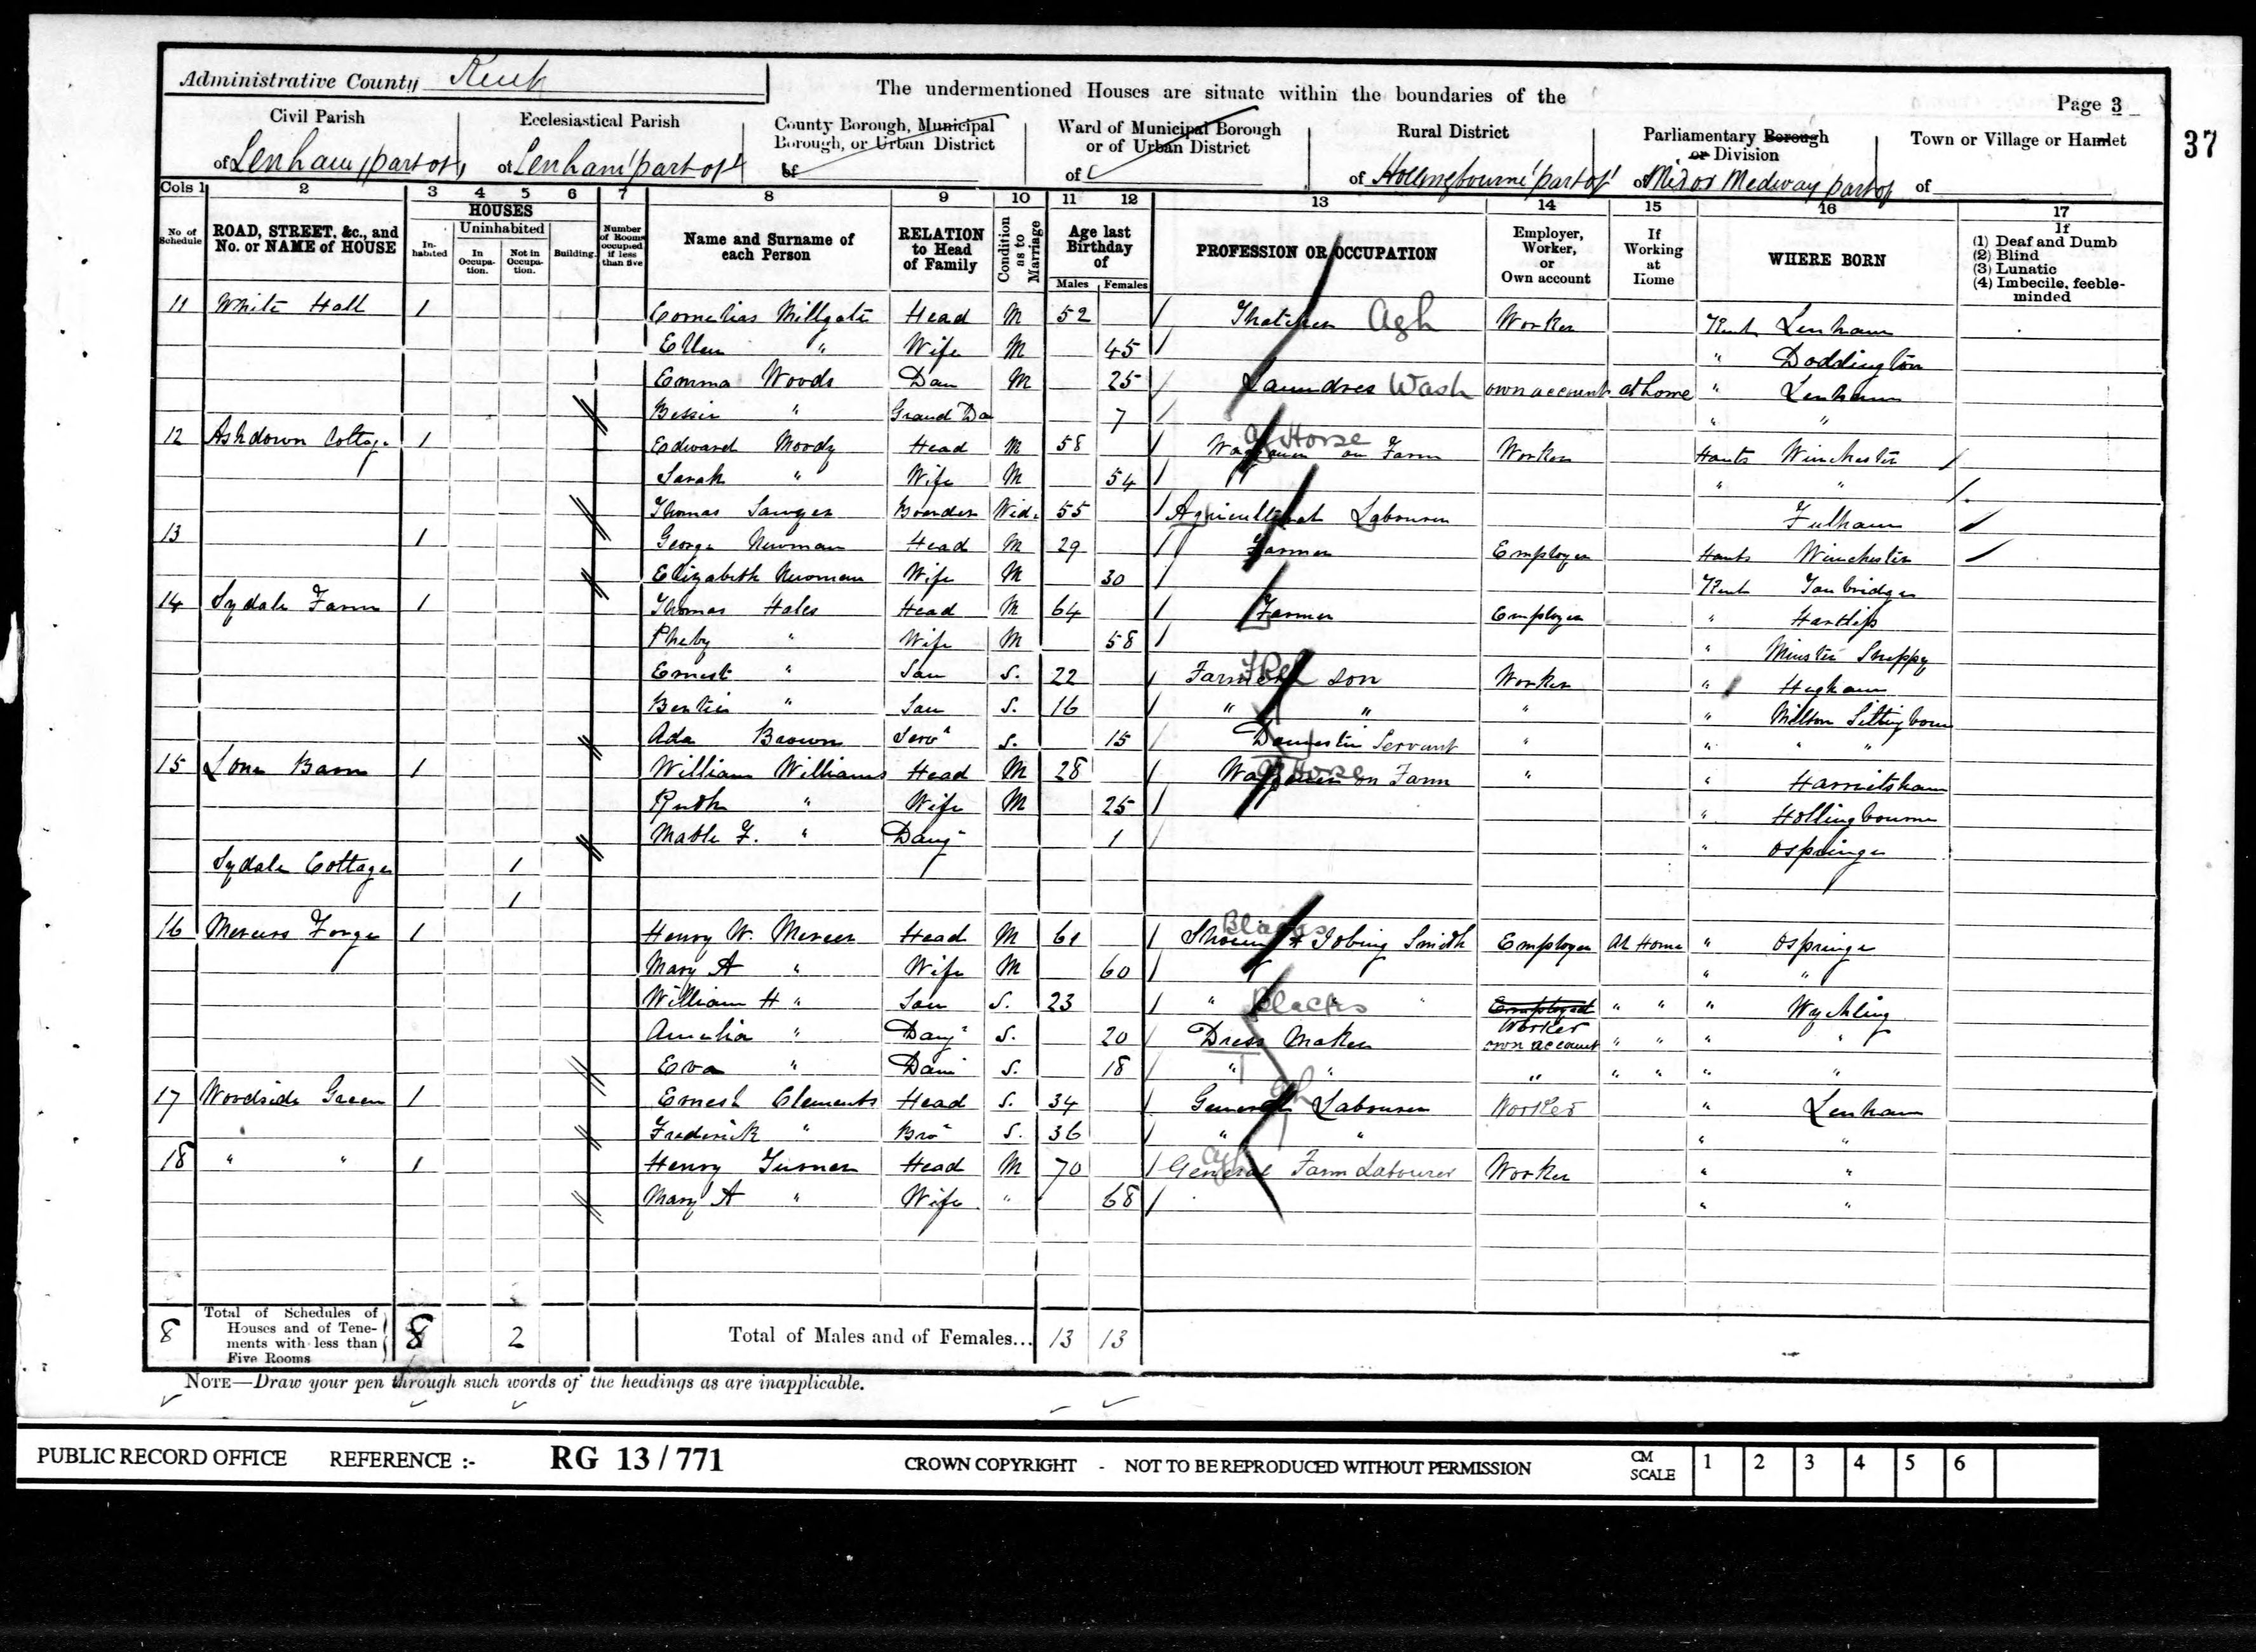 Administrative County Kent
The undermentioned Houses are situate within the boundaries of the
Page 3
37
Civil Parish
of Lenham (part of)
Ecclesiastical Parish
of Lenham (part of)
County Borough, Municipal
Borough, or Urban District
of
Ward of Municipal Borough
or of Urban District
of
Rural District
of Hollingbourne (part of)
Parliamentary Borough
or Division
of Mid or Medway part of
Town or Village or Hamlet
of
Cols 1 2 3 4 5 6 7 8 9 10 11 12 13 14 15 16 17
No of Schedule
ROAD, STREET, &c., and No. or NAME of HOUSE
HOUSES
In-habited
Uninhabited
In Occupa-tion.
Not in Occupa-tion.
Building.
Number of Rooms occupied if less than five
Name and Surname of each Person
RELATION to Head of Family
Condition as to Marriage
Age last Birthday of
Males Females
PROFESSION OR OCCUPATION
Employer, Worker, or Own account
If Working at Home
WHERE BORN
If
(1) Deaf and Dumb
(2) Blind
(3) Lunatic
(4) Imbecile, feeble-minded
11 White Hall 1 Cornelias Millgate Head M 52 Thatcher Agh Worker Kent Lenham
Ellen " Wife M 45 " Doddington
Emma Woods Dau M 25 Laundres Wash own account at home " Lenham
Bessie " Grand Da 7 " "
12 Ashdown Cottage 1 Edward Moody Head M 58 Waggoner on Farm Horse Worker Hants Winchester
Sarah " Wife M 54 " "
Thomas Sawyer Boarder Wid. 55 Agricultural Labourer Fulham
13 1 George Newman Head M 29 Farmer Employer Hants Winchester
Elizabeth Newman Wife M 30 Kent Tonbridge
14 Sydale Farm 1 Thomas Hales Head M 64 Farmer Employer " Hartlip
Pheby " Wife M 58 " Minster Sheppy
Ernest " Son S. 22 Farmers son Worker " Higham
Bertie " Son S. 16 " " " " Milton Sittingbourn
Ada Brown Serv S. 15 Domestic Servant " " " "
15 Lone Barn 1 William Williams Head M 28 Waggoner on Farm Horse " " Harrietsham
Ruth " Wife M 25 " Hollingbourne
Mable F. " Daug 1 " Ospringe
Sydale Cottages 1
1
16 Mercers Forge 1 Henry W. Mercer Head M 61 Shoeing & Jobing Smith Blacks Employer At Home " Ospringe
Mary A " Wife M 60 " "
William H " Son S. 23 " " " Blacks Employed Worker " " " Wychling
Amelia " Daug S. 20 Dress Maker own account " " " "
Eva " Dau S. 18 " " " " " " "
17 Woodside Green 1 Ernest Clements Head S. 34 General Labourer Worker " Lenham
Frederick " Bro S. 36 " " " "
18 " " 1 Henry Turner Head M 70 General Farm Labourer Agh Worker " "
Mary A " Wife " 68 " "
8 Total of Schedules of Houses and of Tene-ments with less than Five Rooms 8 2 Total of Males and of Females... 13 13
NOTE—Draw your pen through such words of the headings as are inapplicable.
PUBLIC RECORD OFFICE REFERENCE :- RG 13/771 CROWN COPYRIGHT - NOT TO BE REPRODUCED WITHOUT PERMISSION CM SCALE 1 2 3 4 5 6